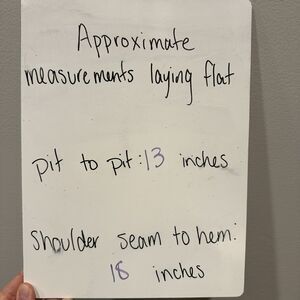 Approximate
measurements laying flat
pit to pit: 13 inches
Shoulder seam to hem:
18 inches